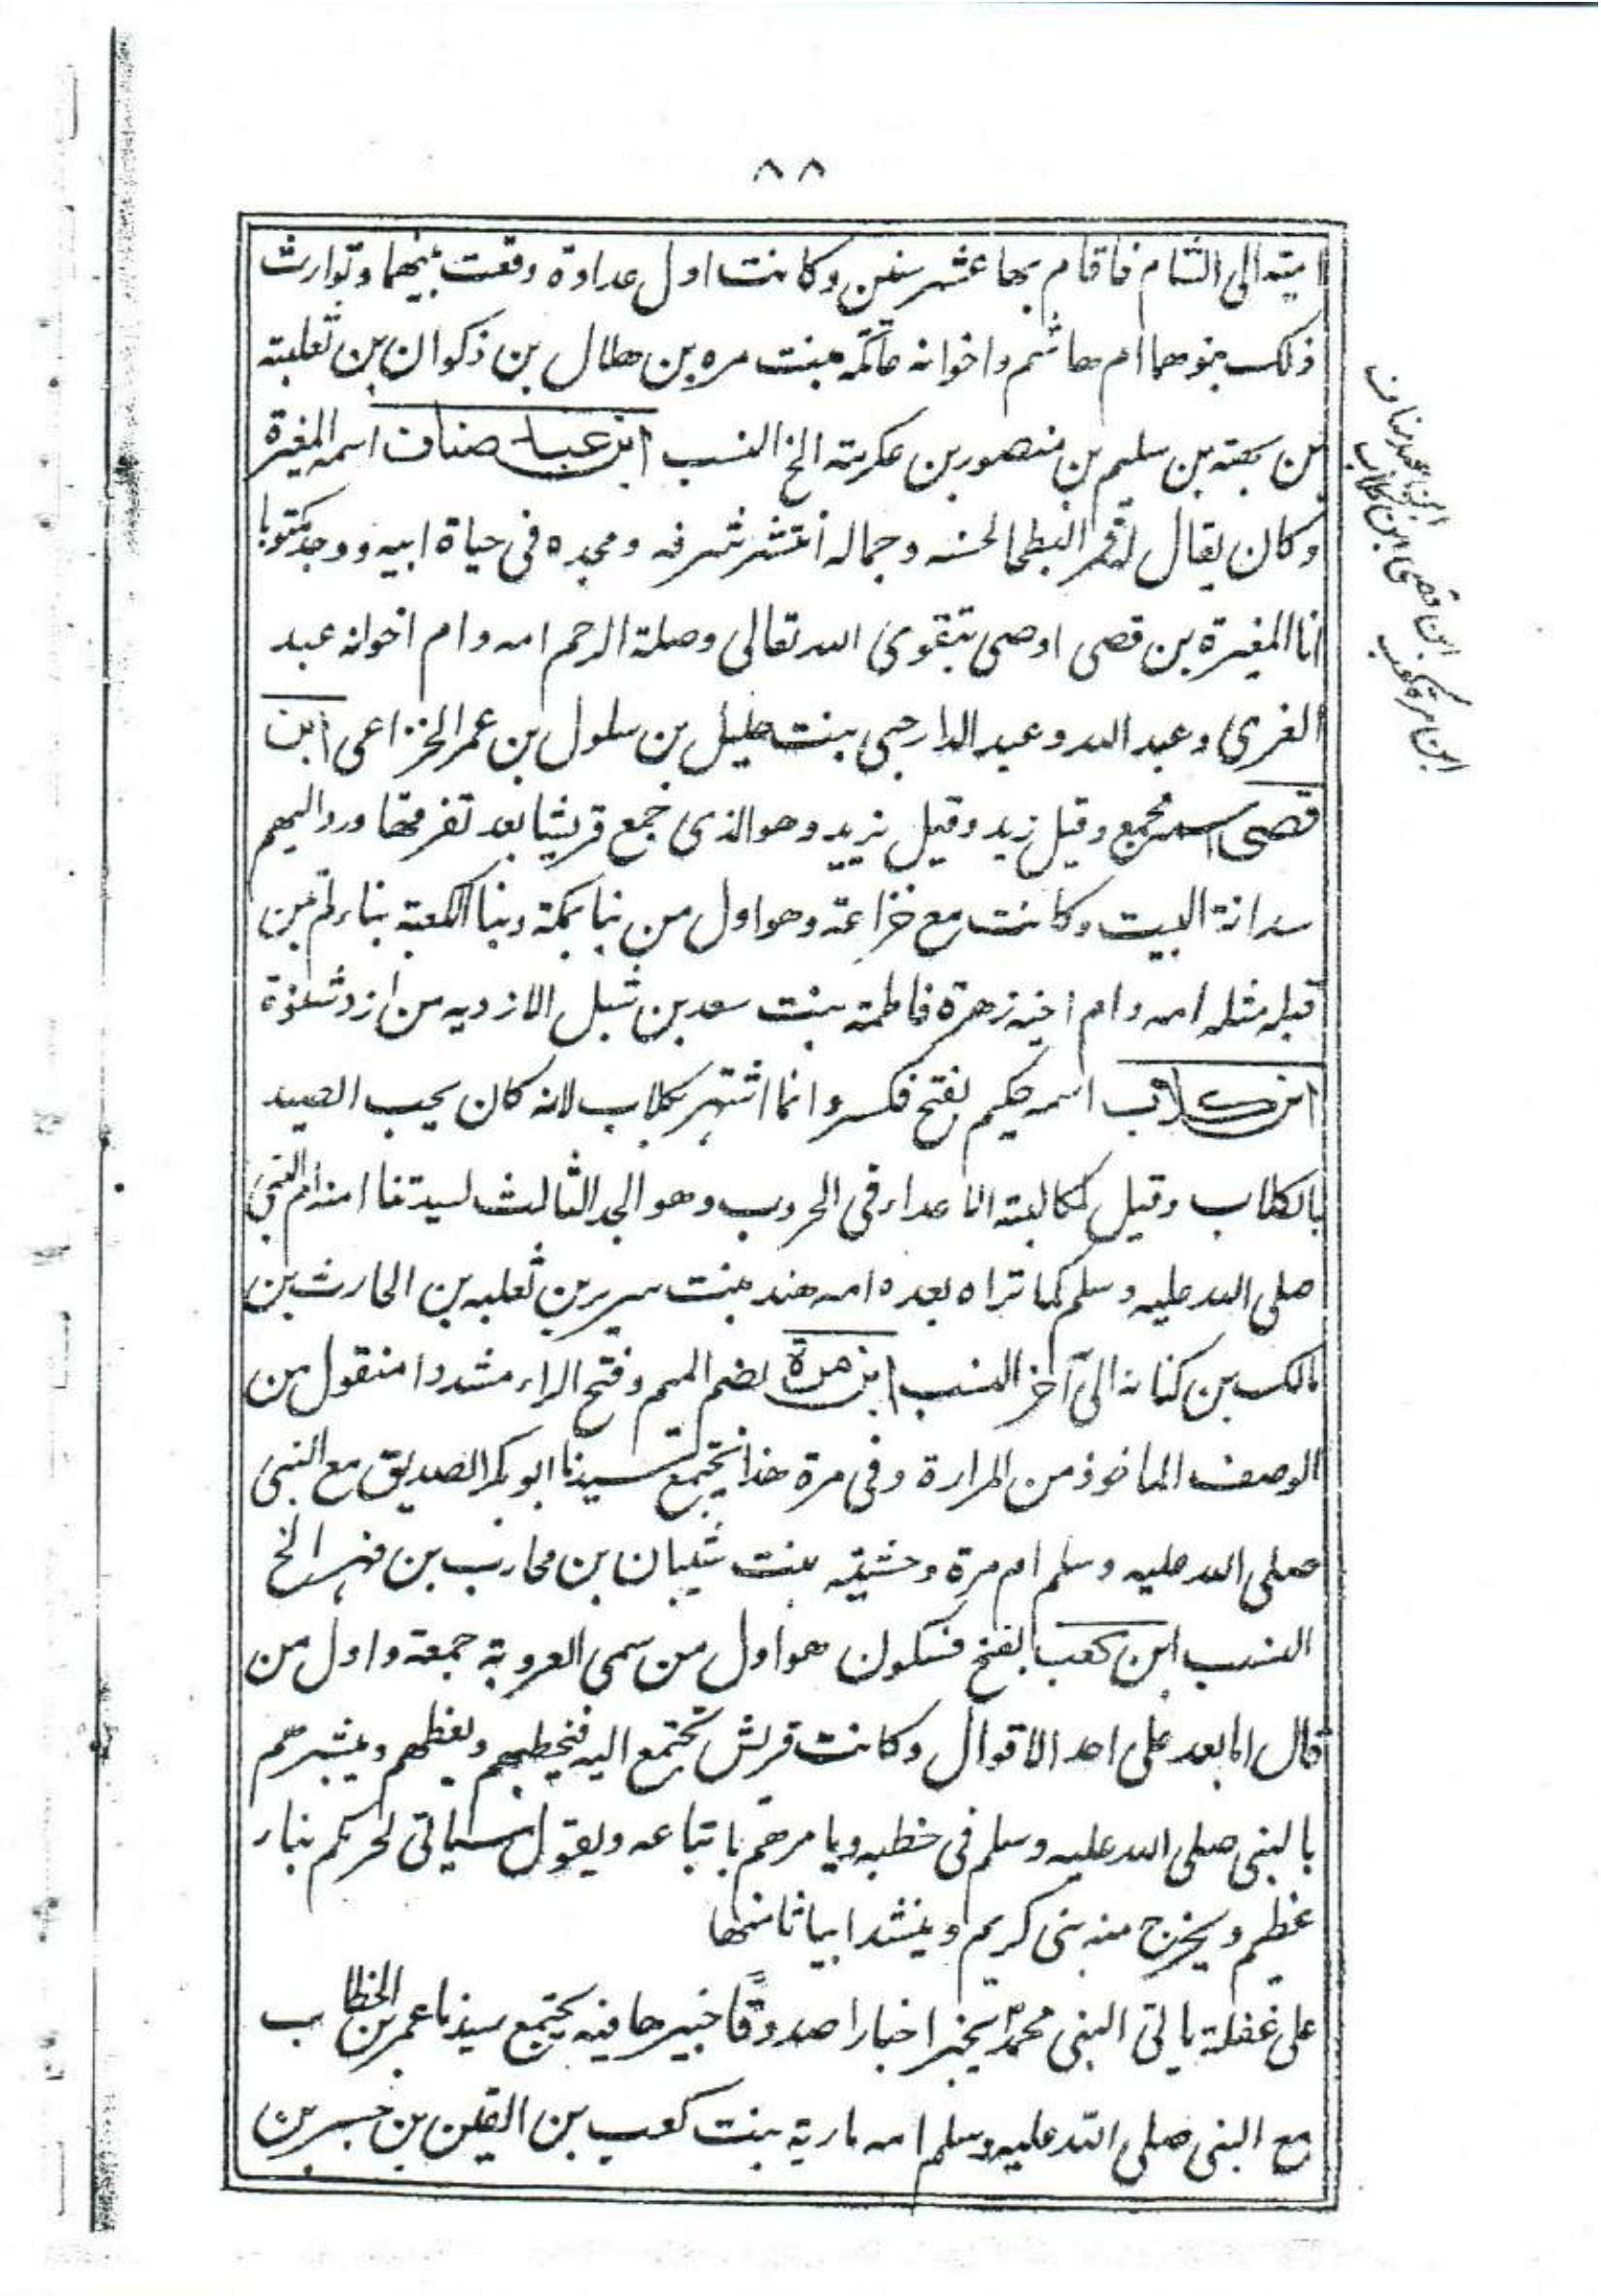 ٨٨
امیته الی الشام فاقام بها عشر سنین وکانت اول عداوة وقعت بینهما وتوارث
ذلک بنوهما ام هاشم واخوانه عاتکة بنت مره بن هلال بن ذکوان بن ثعلبته
بن بهته بن سلیم بن منصور بن عکرمته الخ النسب ابن عبد مناف اسمه المغیرة
وکان یقال له قمر البطحا لحسنه وجماله انتشر شرفه ومجده فی حیاة ابیه ووجد مکتوبا
انا المغیرة بن قصی اوصی بتقوی الله تعالی وصلة الرحم امه وام اخوانه عبد
العزی وعبد الله وعبد الدار حبی بنت حلیل بن سلول بن عمر الخزاعی ابن
قصی اسمه مجمع وقیل زید وقیل یزید وهو الذی جمع قریشا بعد تفرقها ورد الیهم
سدانة البیت وکانت مع خزاعة وهو اول من بنا بمکة وبنا الکعبة بناء لم یبن
قبله مثله امه وام اخیه زهرة فاطمة بنت سعد بن شبل الازدیه من ازد شنؤة
ابن کلاب اسمه حکیم بفتح فکسر وانما اشتهر بکلاب لانه کان یحب الصید
بالکلاب وقیل لمکالبته الاعداء فی الحروب وهو الجد الثالث لسیدتنا امنه ام النبی
صلی الله علیه وسلم کما تراه بعده امه هند بنت سریر بن ثعلبه بن الحارث بن
مالک بن کنانه الی آخر النسب ابن مرة بضم المیم وفتح الراء مشددا منقول من
الوصف الماخوذ من المرارة وفی مرة هذا یجتمع سیدنا ابوبکر الصدیق مع النبی
صلی الله علیه وسلم ام مرة وحشیته بنت شیبان بن محارب بن فهر الخ
النسب ابن کعب بفتح فسکون هو اول من سمی العروبة جمعة واول من
قال اما بعد علی احد الاقوال وکانت قریش تجتمع الیه فیخطبهم ویعظهم ویبشرهم
بالنبی صلی الله علیه وسلم فی خطبه ویامرهم باتباعه ویقول سیاتی لحرمکم نباء
عظیم ویخرج منه نبی کریم وینشد ابیاتا منها
علی غفلة یاتی النبی محمدؐ یخبر اخبارا صدوقًا خبیرها فیه یجتمع سیدنا عمر بن الخطاب
مع النبی صلی الله علیه وسلم امه ماریة بنت کعب بن القین بن جسر بن
ابن عبد مناف
ابن قصی ابن کلاب
ابن مرة کعب